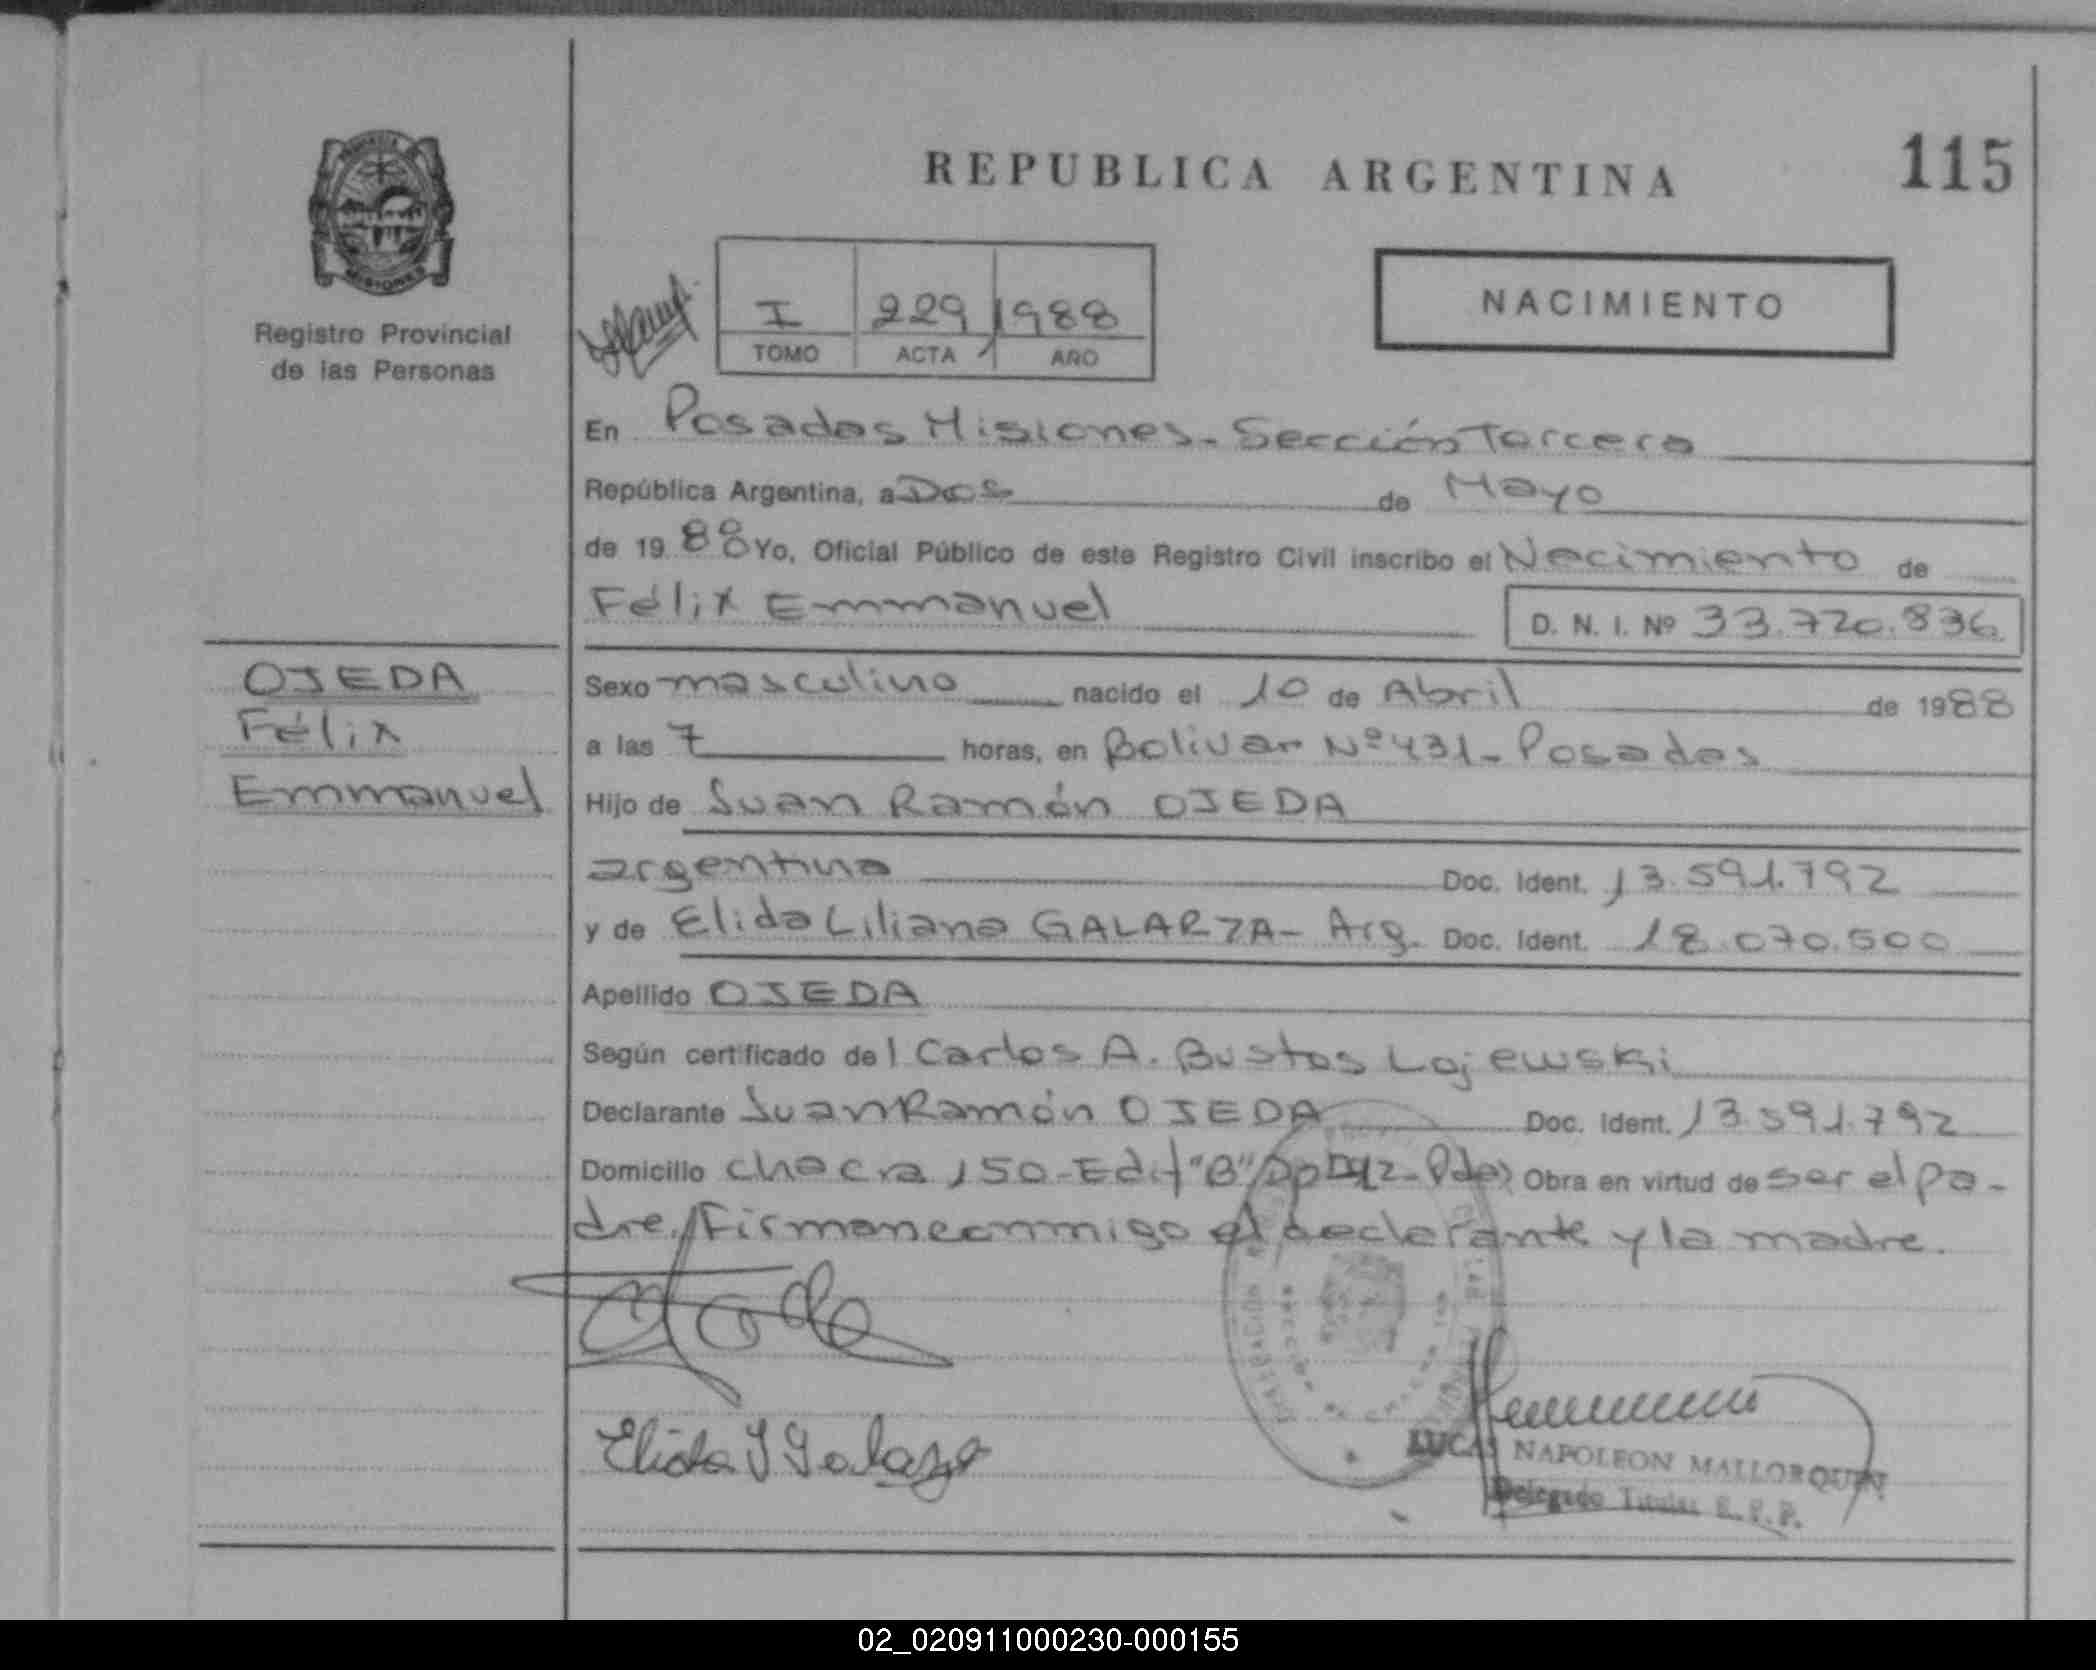 REPUBLICA ARGENTINA
115
PROVINCIA
MISIONES
Registro Provincial
de las Personas
I 229 1988
TOMO ACTA AÑO
NACIMIENTO
En Posadas Misiones - Sección Tercera
República Argentina, a Dos de Mayo
de 1988 Yo, Oficial Público de este Registro Civil inscribo el Nacimiento de
Félix Emmanuel
D. N. I. Nº 33.720.836
OJEDA
Félix
Emmanuel
Sexo masculino nacido el 10 de Abril de 1988
a las 7 horas, en Bolivar Nº 431 - Posadas
Hijo de Juan Ramón OJEDA
argentino Doc. Ident. 13.591.792
y de Elida Liliana GALARZA - Arg. Doc. Ident. 18.070.500
Apellido OJEDA
Según certificado del Carlos A. Bustos Lojewski
Declarante Juan Ramón OJEDA Doc. Ident. 13.591.792
Domicilio chacra 150 - Edif "B" - Pdas Obra en virtud de ser el pa-
dre. Firman conmigo el declarante y la madre.
Elida Galarza
LUCAS NAPOLEON MALLORQUIN
Delegado Titular R.P.P.
02_020911000230-000155